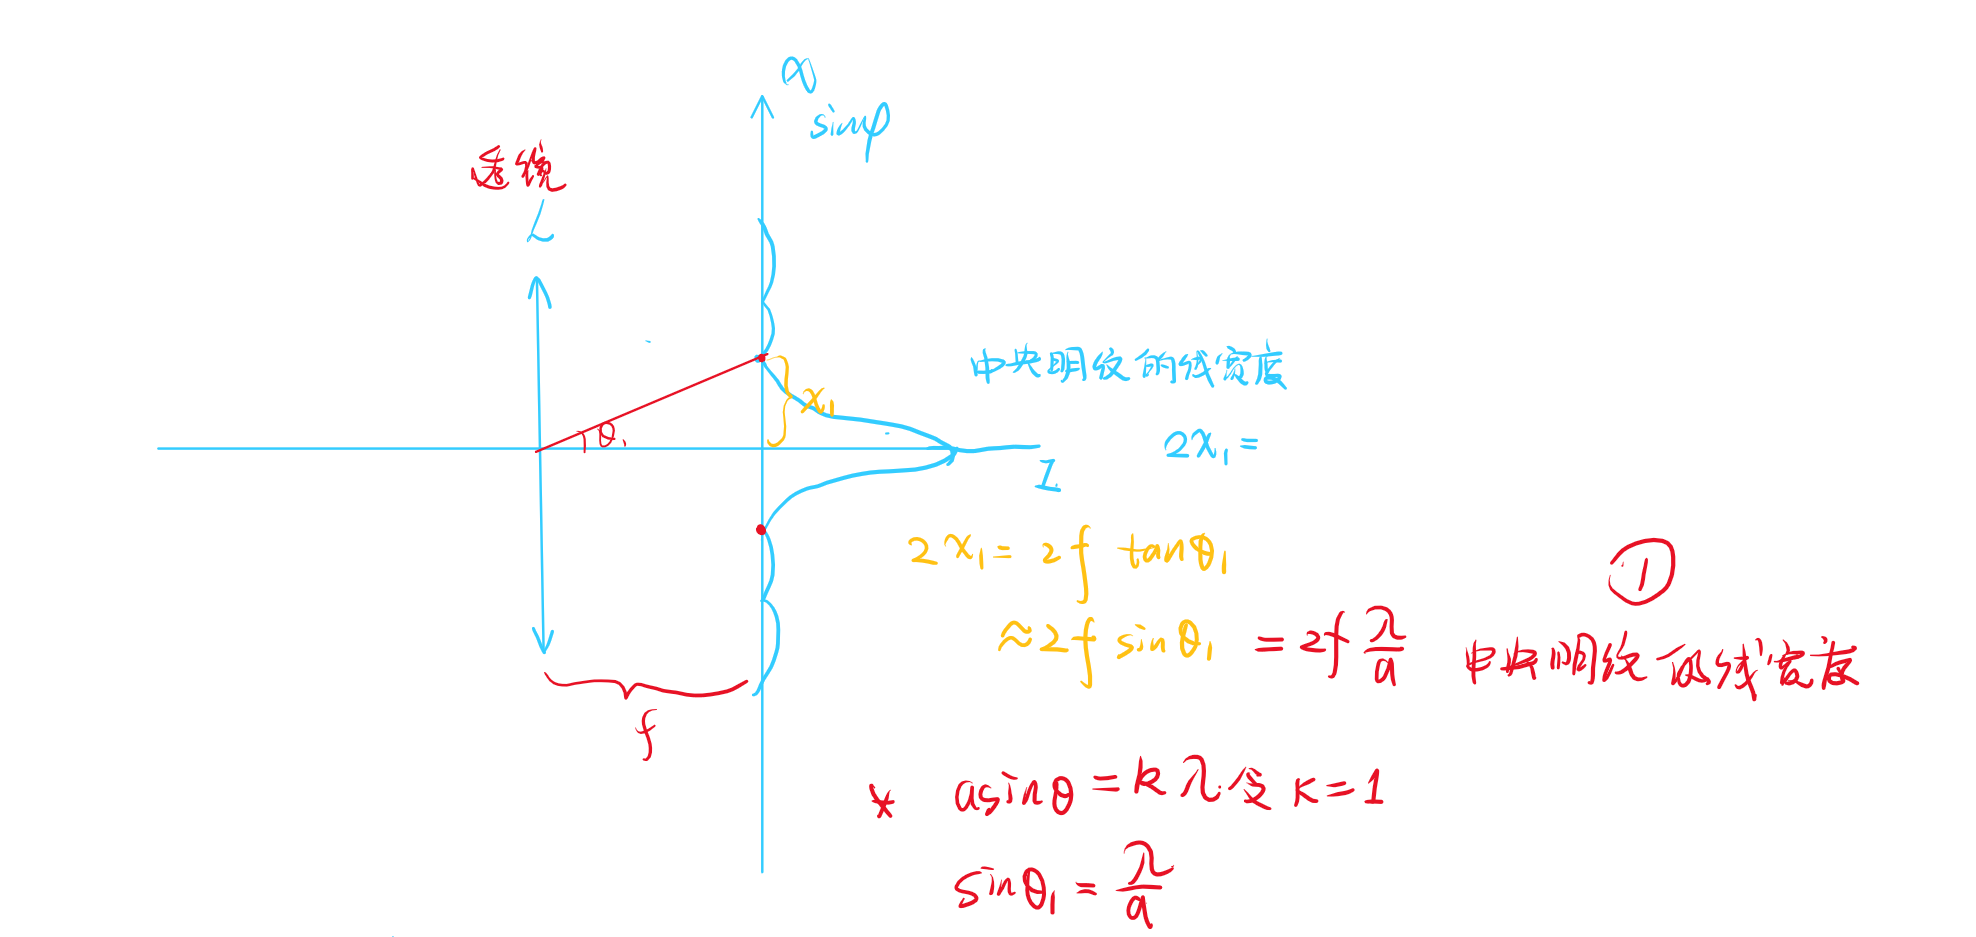 x
sinφ
透镜
L
θ₁
x₁
I
f
中央明纹的线宽度
2x₁=
2x₁= 2f tanθ₁
≈2f sinθ₁ = 2f λ/a
①
中央明纹的线宽度
* asinθ=kλ 令 K=1
sinθ₁ = λ/a